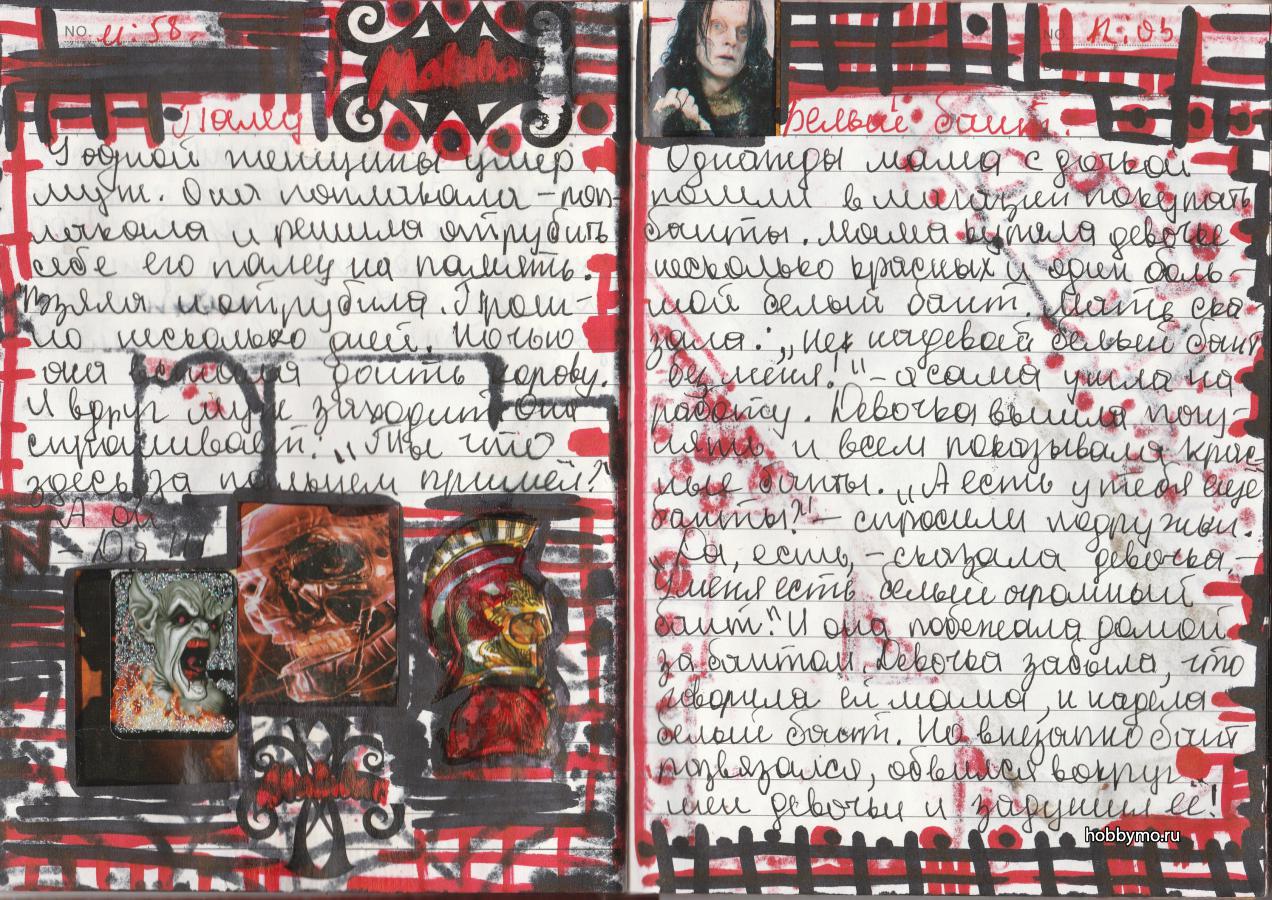 NO. 11:58.
Malibu
Палец
У одной женщины умер
муж. Она поплакала – поп-
лакала и решила отрубить
себе его палец на память.
Взяла и отрубила. Прош-
ло несколько дней. Ночью
она доить корову.
И вдруг муж заходит. Она
спрашивает: „Ты что
здесь за пальцем пришёл?"
А он
– Да!!!
NO. 12:03
Белый бант.
Однажды мама с дочкой
пошли в магазин покупать
банты. Мама купила девочке
несколько красных и один боль-
шой белый бант. Мать ска-
зала: „Не надевай белый бант
без меня!" – а сама ушла на
работу. Девочка вышла погу-
лять и всем показывала крас-
ные банты. „А есть у тебя еще
банты?" – спросили подружки.
„Да, есть, – сказала девочка, –
у меня есть белый огромный
бант." И она побежала домой
за бантом. Девочка забыла, что
говорила ей мама, и надела
белый бант. Но внезапно бант
развязался, обвился вокруг
шеи девочки и задушил ее!
hobbymo.ru